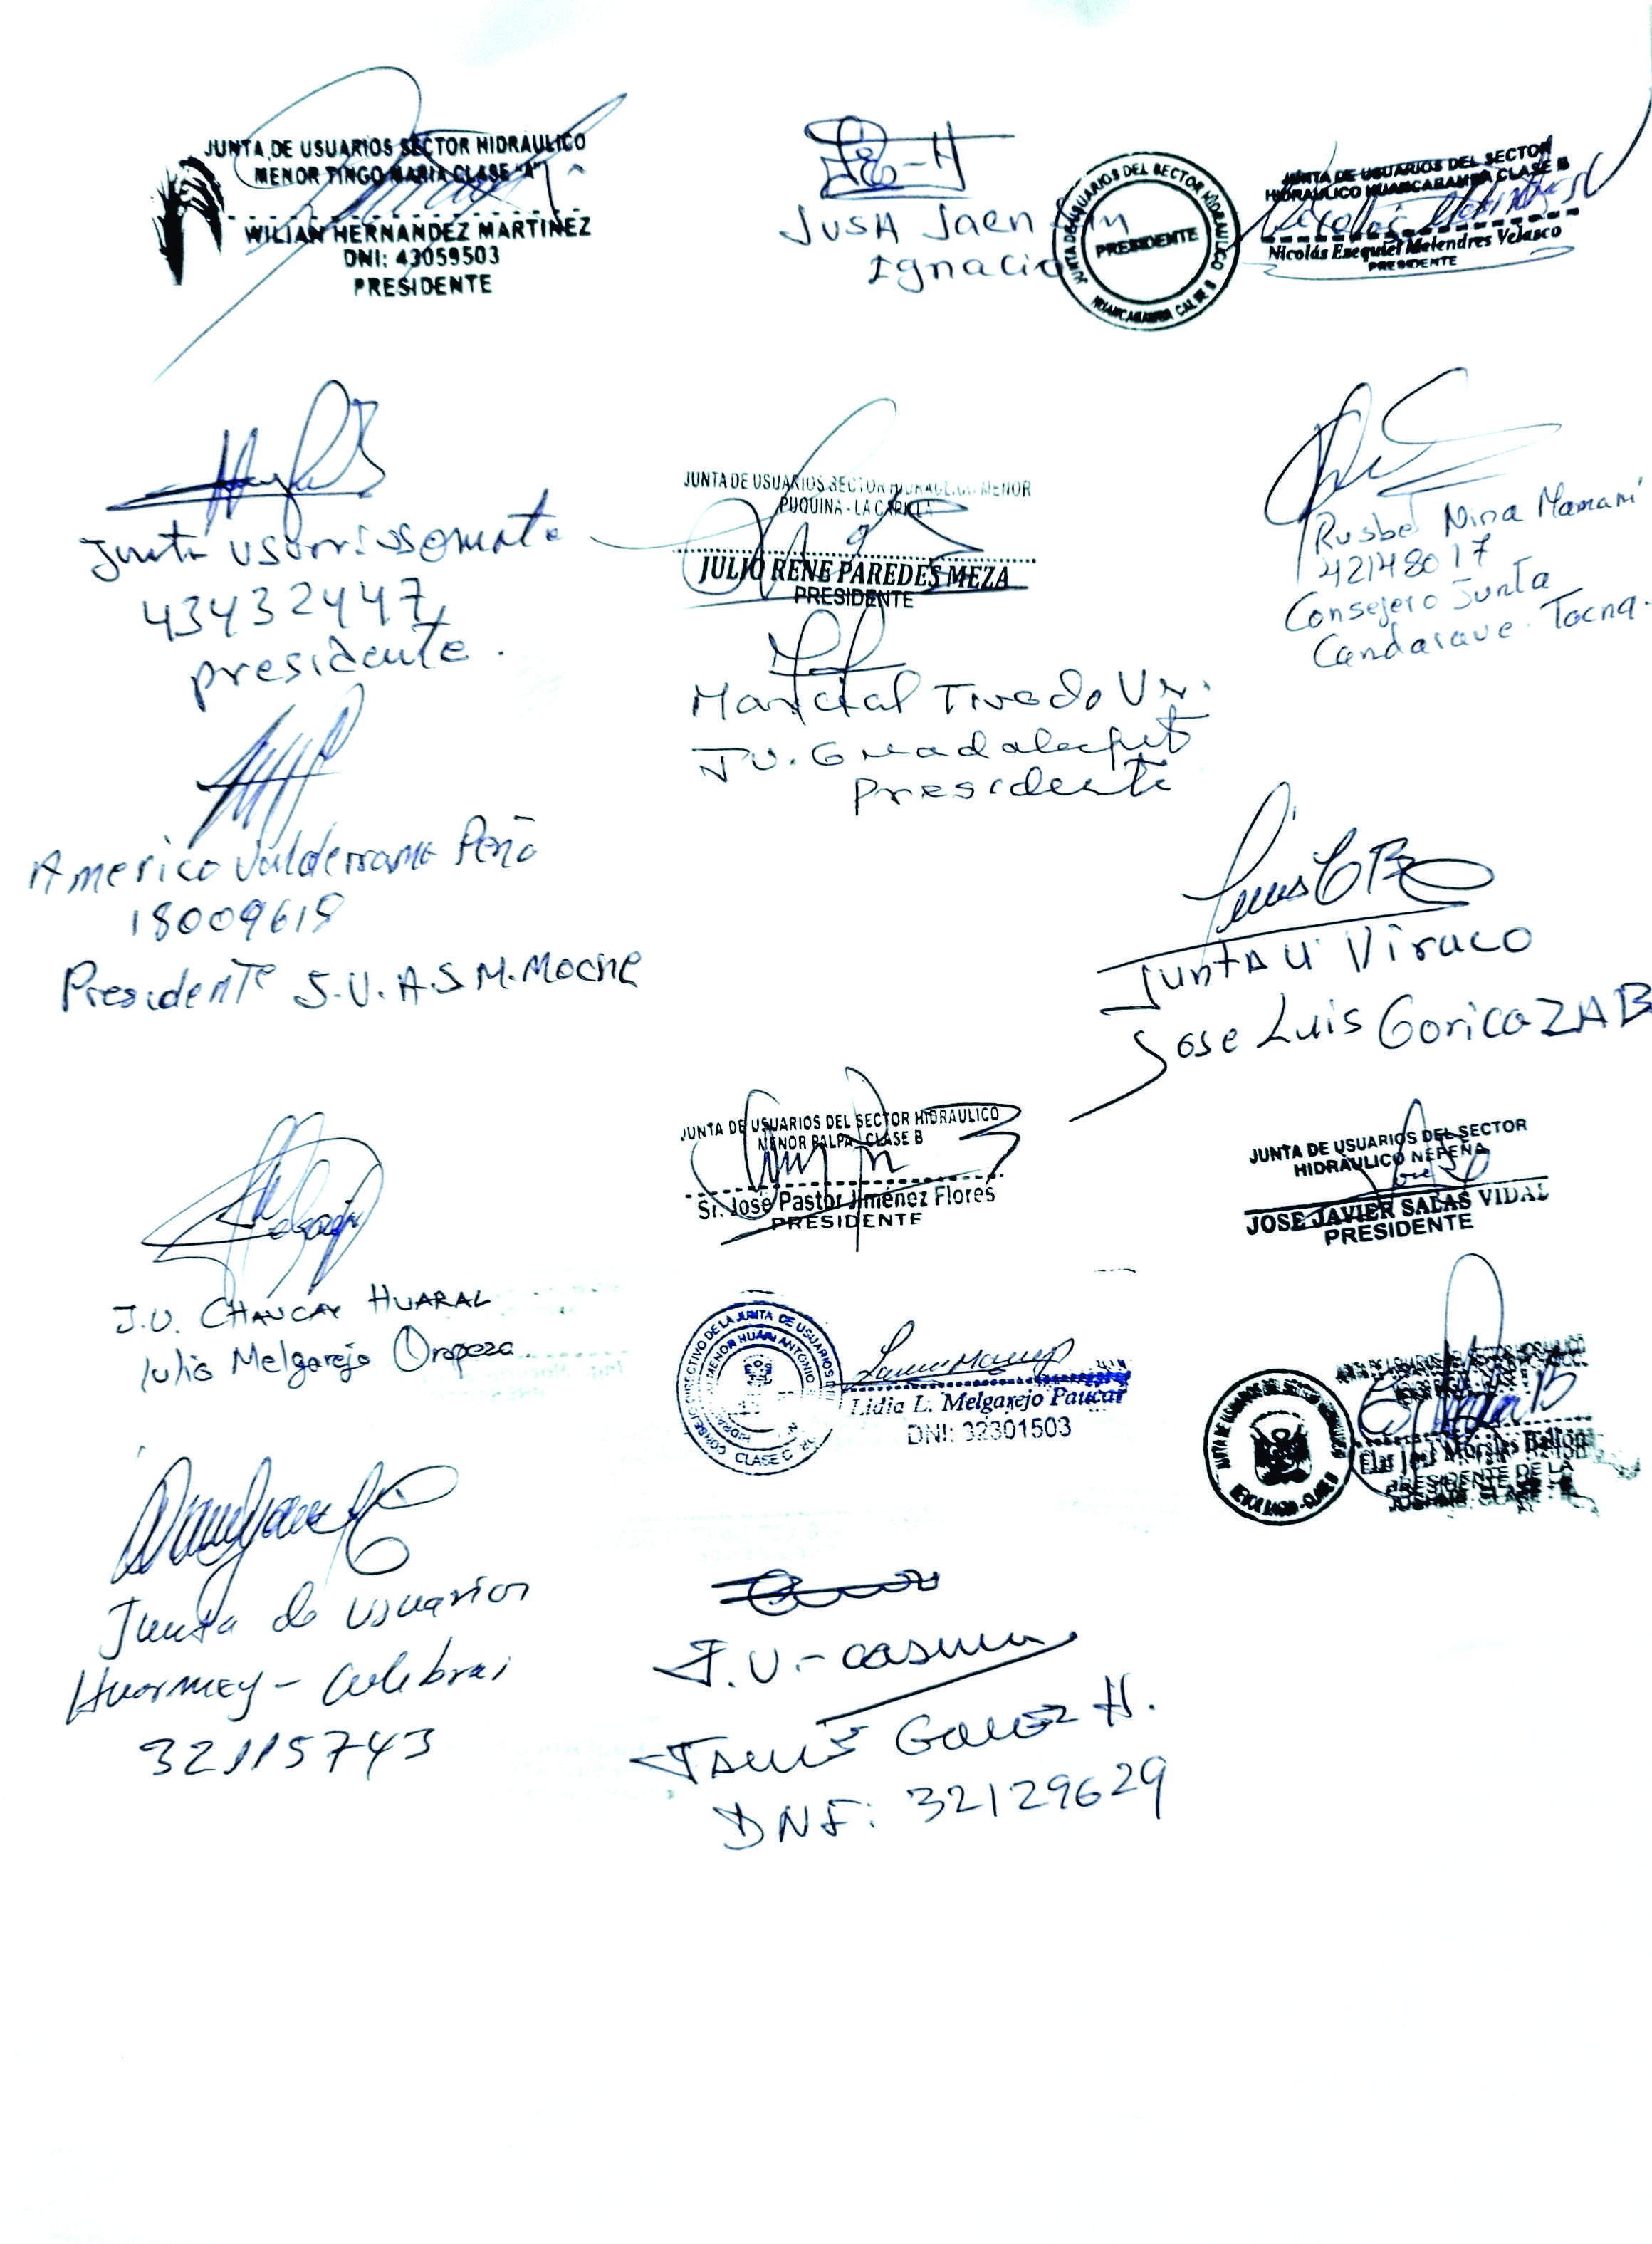 JUNTA DE USUARIOS SECTOR HIDRAULICO
MENOR TINGO MARIA CLASE "A"
WILIAN HERNANDEZ MARTINEZ
DNI: 43059503
PRESIDENTE
JUSH Jaen San
Ignacio
JUNTA DE USUARIOS DEL SECTOR HIDRAULICO
PRESIDENTE
HUANCABAMBA CALSE B
JUNTA DE USUARIOS DEL SECTOR
HIDRAULICO HUANCABAMBA CLASE B
Nicolás Ezequiel Melendres Velasco
PRESIDENTE
Junta
43432447
presidente.
JUNTA DE USUARIOS SECTOR HIDRAULICO MENOR
PUQUINA - LA CAPILLA
JULIO RENE PAREDES MEZA
PRESIDENTE
Rusbel Nina Mamani
42148017
Consejero Junta
Candarave - Tacna.
Marcial
J.U. Guadalupito
Presidente
Americo Valderrama Peña
18009618
Presidente J.U.A.S M. Moche
Junta U Viraco
Jose Luis Gorica ZAB
J.U. CHANCAY HUARAL
Julio Melgarejo Oropeza
JUNTA DE USUARIOS DEL SECTOR HIDRAULICO
MENOR PALPA CLASE B
Sr. José Pastor Jiménez Flores
PRESIDENTE
JUNTA DE USUARIOS DEL SECTOR
HIDRÁULICO NEPEÑA
JOSE JAVIER SALAS VIDAL
PRESIDENTE
CONSEJO DIRECTIVO DE LA JUNTA DE USUARIOS
MENOR HUARI ANTONIO
CLASE C
Lidia L. Melgarejo Paucar
DNI: 32301503
JUNTA DE USUARIOS DEL SECTOR HIDRAULICO
CLASE B
Morales Ballón
PRESIDENTE DE LA
Junta de usuarios
Huarmey - Culebras
32115743
J.U. - casma
H.
DNI: 32129629